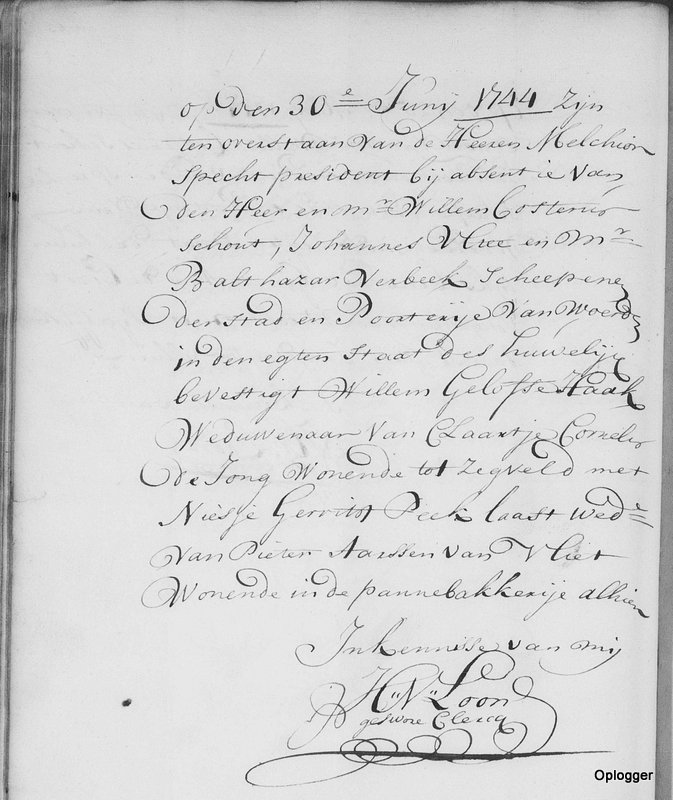 op den 30e Junij 1744 Zijn
ten overstaan van de Heeren Melchior
Specht president bij absentie van
den Heer en mr Willem Costerus
schout, Johannes Vliet en mr
Balthazar Verbeek Scheepene
der stad en Poorterije van Woerd
in den egten staat des huwelijx
bevestigt Willem Gelofse Haak
Weduwenaar van Claartje Cornelis
de Jong Wonende tot Zegveld met
Niesje Gerrits Peek laast wede
van Pieter Aarssen van Vliet
Wonende in de pannebakkerije alhier
In kennisse van mij
H:V: Loon
geswore Clercq
Oplogger